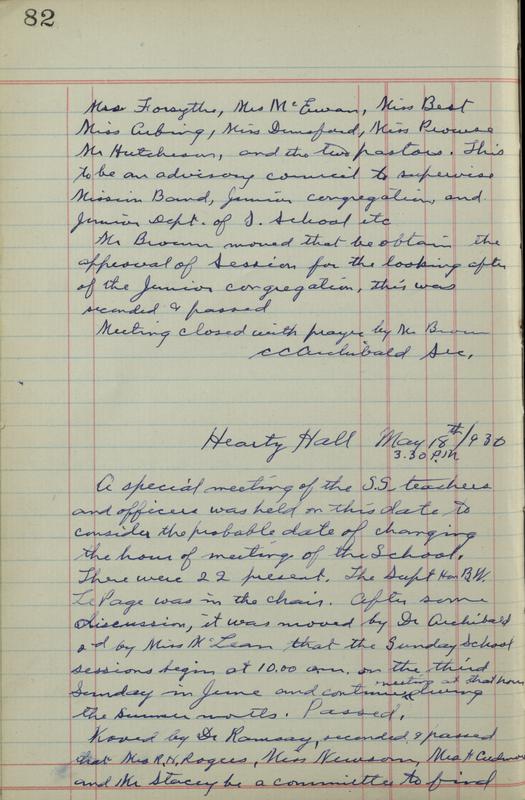 82
Mrs Forsythe, Mrs McEwan, Miss Best
Miss Aebring, Miss Dunsford, Miss Prowse
Mr Hutcheson, and the two pastors. This
to be an advisory council to supervise
Mission Band, Junior congregation, and
Junior Dept. of S. School etc
Mr Brown moved that be obtain the
approval of Session for the looking after
of the Junior congregation, this was
seconded & passed
Meeting closed with prayer by Mr Brown
CCArchibald Sec.
Hearty Hall May 18th/930
3.30 P.M
A special meeting of the S.S. teachers
and officers was held on this date to
consider the probable date of changing
the hour of meeting of the School.
There were 22 present. The Supt Hon B.W.
LePage was in the chair. After some
discussion, it was moved by Dr Archibald
2d by Miss McLean that the Sunday School
sessions begin at 10.00 am. on the third
Sunday in June and continue meeting at that hour during
the summer months. Passed.
Moved by Dr Ramsay, seconded & passed
that Mrs R.H. Rogers, Miss Newsom, Mrs H
and Mr Stacey be a committee to find